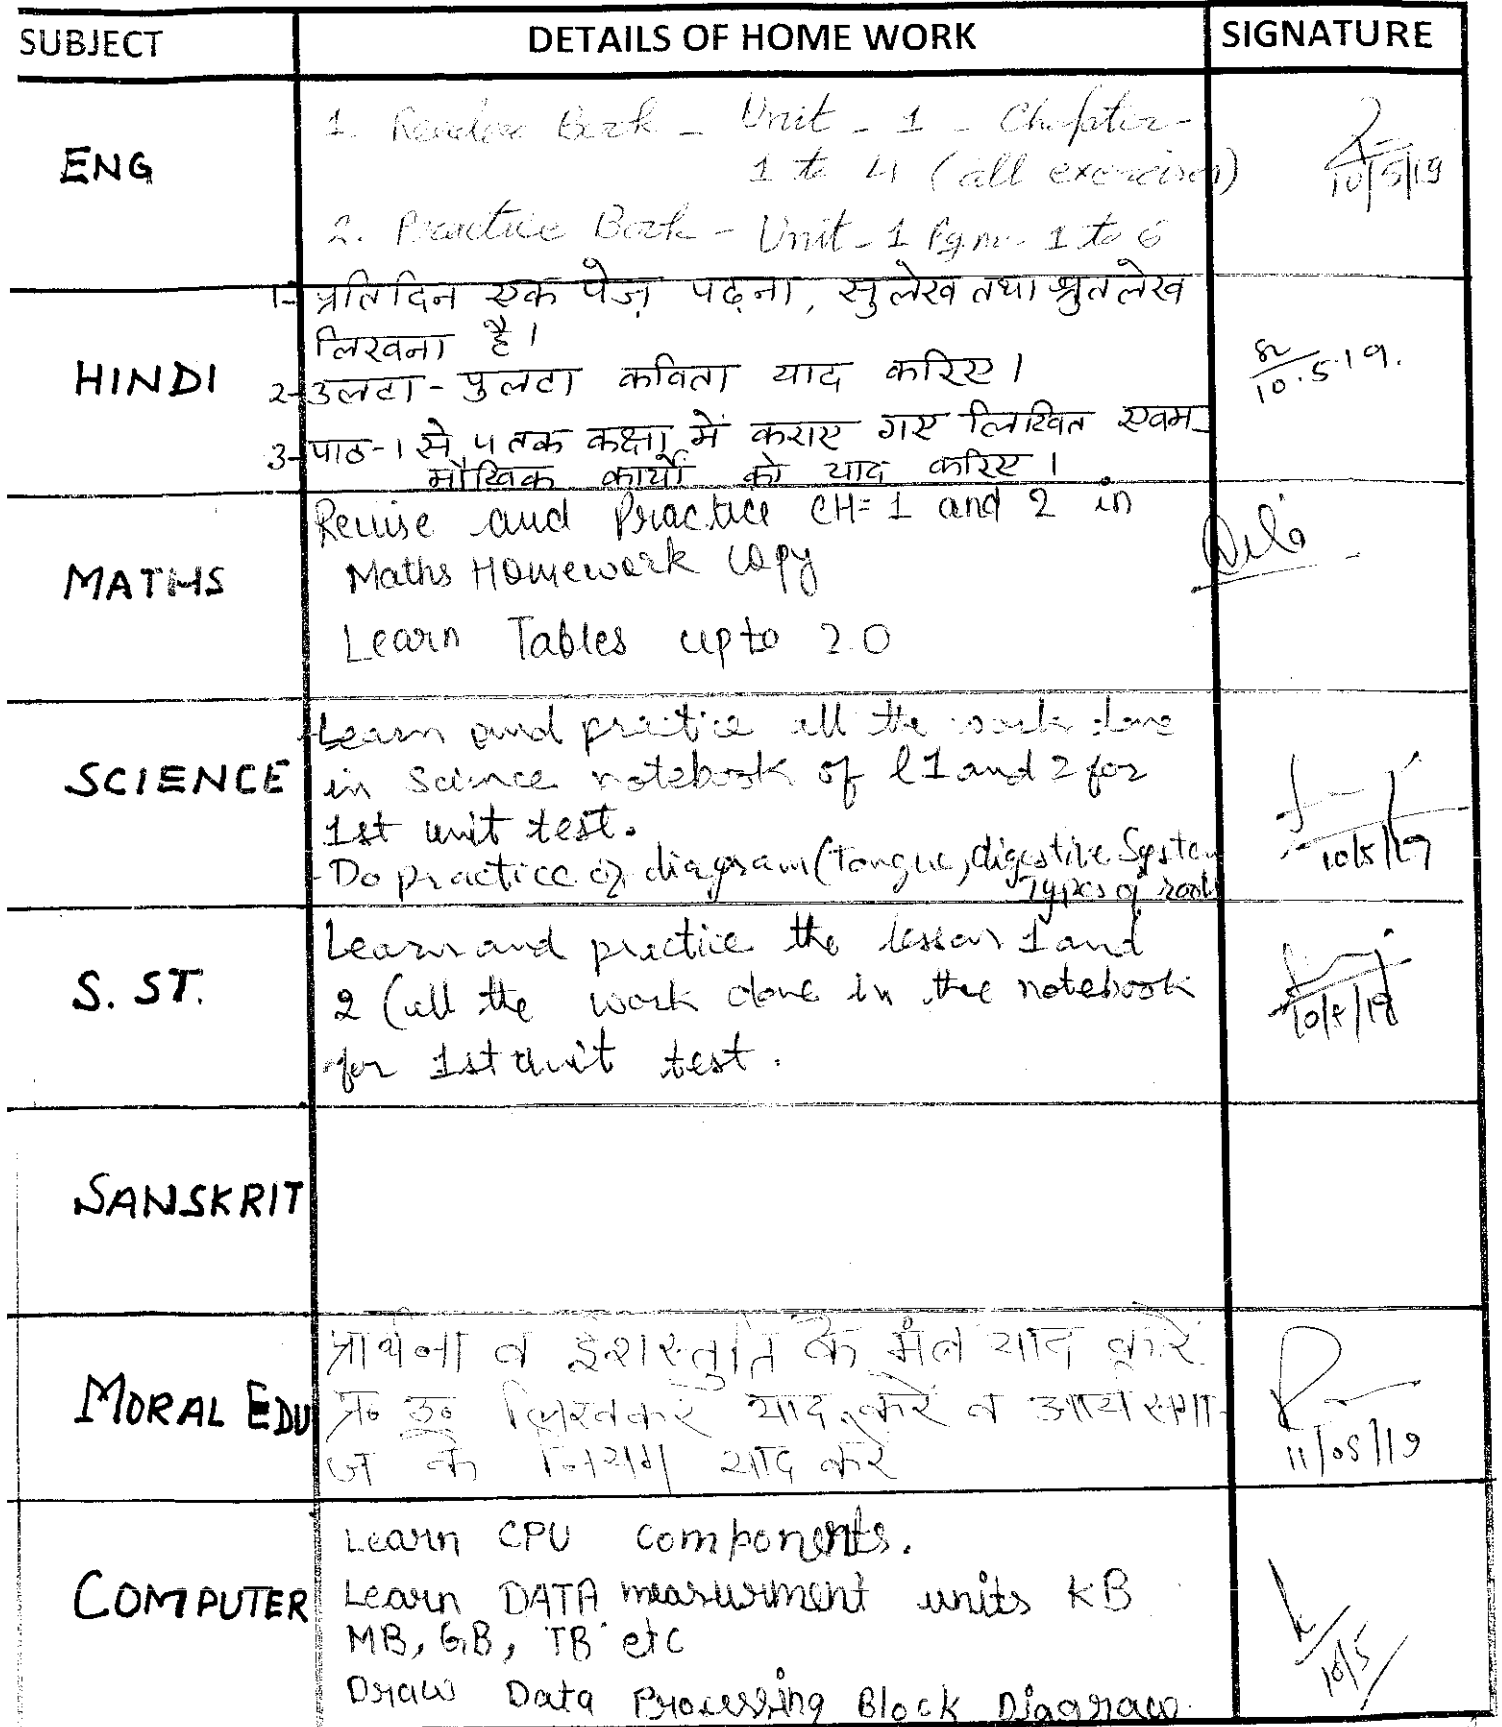 SUBJECT DETAILS OF HOME WORK SIGNATURE
ENG
1. Reader Book - Unit - 1 - Chapter-
1 to 4 (all exercises)
2. Practice Book - Unit - 1 Pg.no- 1 to 6
10/5/19
HINDI
1- प्रतिदिन एक पेज़ पढ़ना, सुलेख तथा श्रुतलेख
लिखना है।
2- उलटा-पुलटा कविता याद करिए।
3- पाठ-1 से 4 तक कक्षा में कराए गए लिखित एवम
मौखिक कार्यों को याद करिए।
10.5.19.
MATHS
Revise and Practice CH=1 and 2 in
Maths Homework copy
Learn Tables upto 20
SCIENCE
Learn and practice all the work done
in Science notebook of l 1 and 2 for
1st unit test.
-Do practice of diagram (Tongue, digestive System
Types of roots
10/5/19
S. ST.
Learn and practice the lesson 1 and
2 (all the work done in the notebook
for 1st unit test.
SANSKRIT
MORAL EDU
प्रार्थना व ईशस्तुति के मंत्र याद करें
प्र० उ० लिखकर याद करें व आर्य समा-
ज के नियम याद करें
11/05/19
COMPUTER
Learn CPU components.
Learn DATA measurment units KB
MB, GB, TB etc
Draw Data Processing Block Diagram.
10/5